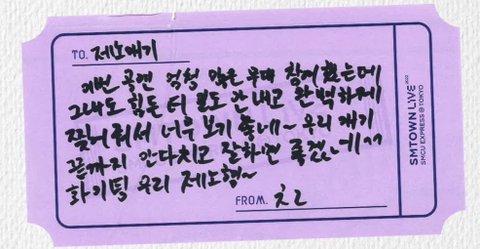 TO. 제노애기
이번 공연 엄청 많은 무대 참여했는데
그래도 힘든 티 안내고 완벽하게
너무 보기 좋네~ 우리 애기
끝까지 안다치고 잘하면 좋겠네^^
화이팅 우리 제노형~
FROM. ㅊㄹ
SMTOWN LIVE 2022
SMCU EXPRESS @TOKYO